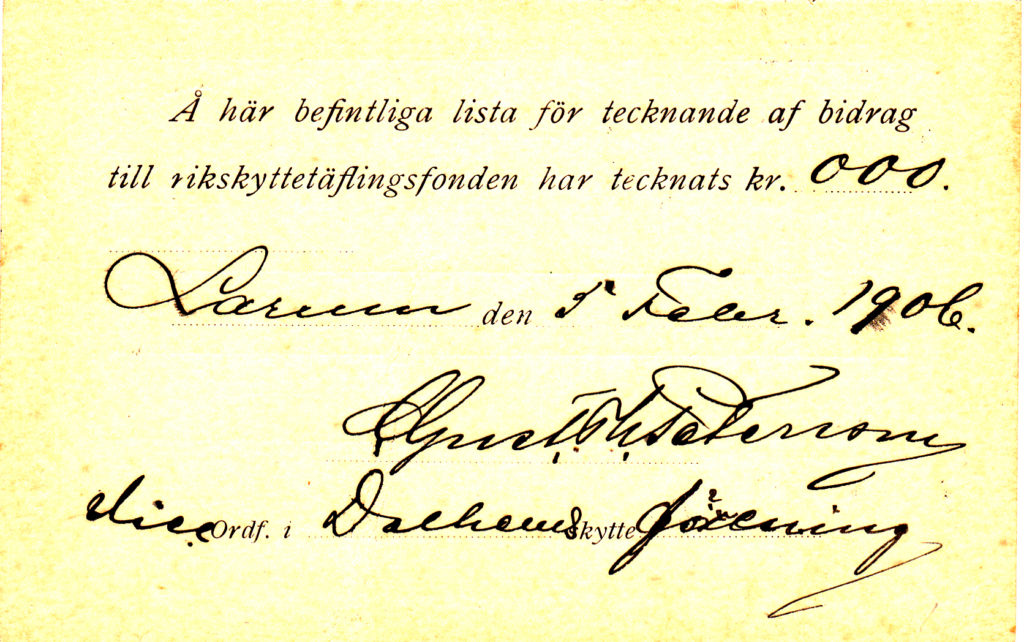 Å här befintliga lista för tecknande af bidrag
till rikskyttetäflingsfonden har tecknats kr. 000.
den 5 Febr. 1906.
Gust Peterson
Vice Ordf. i Dalhems skytteförening